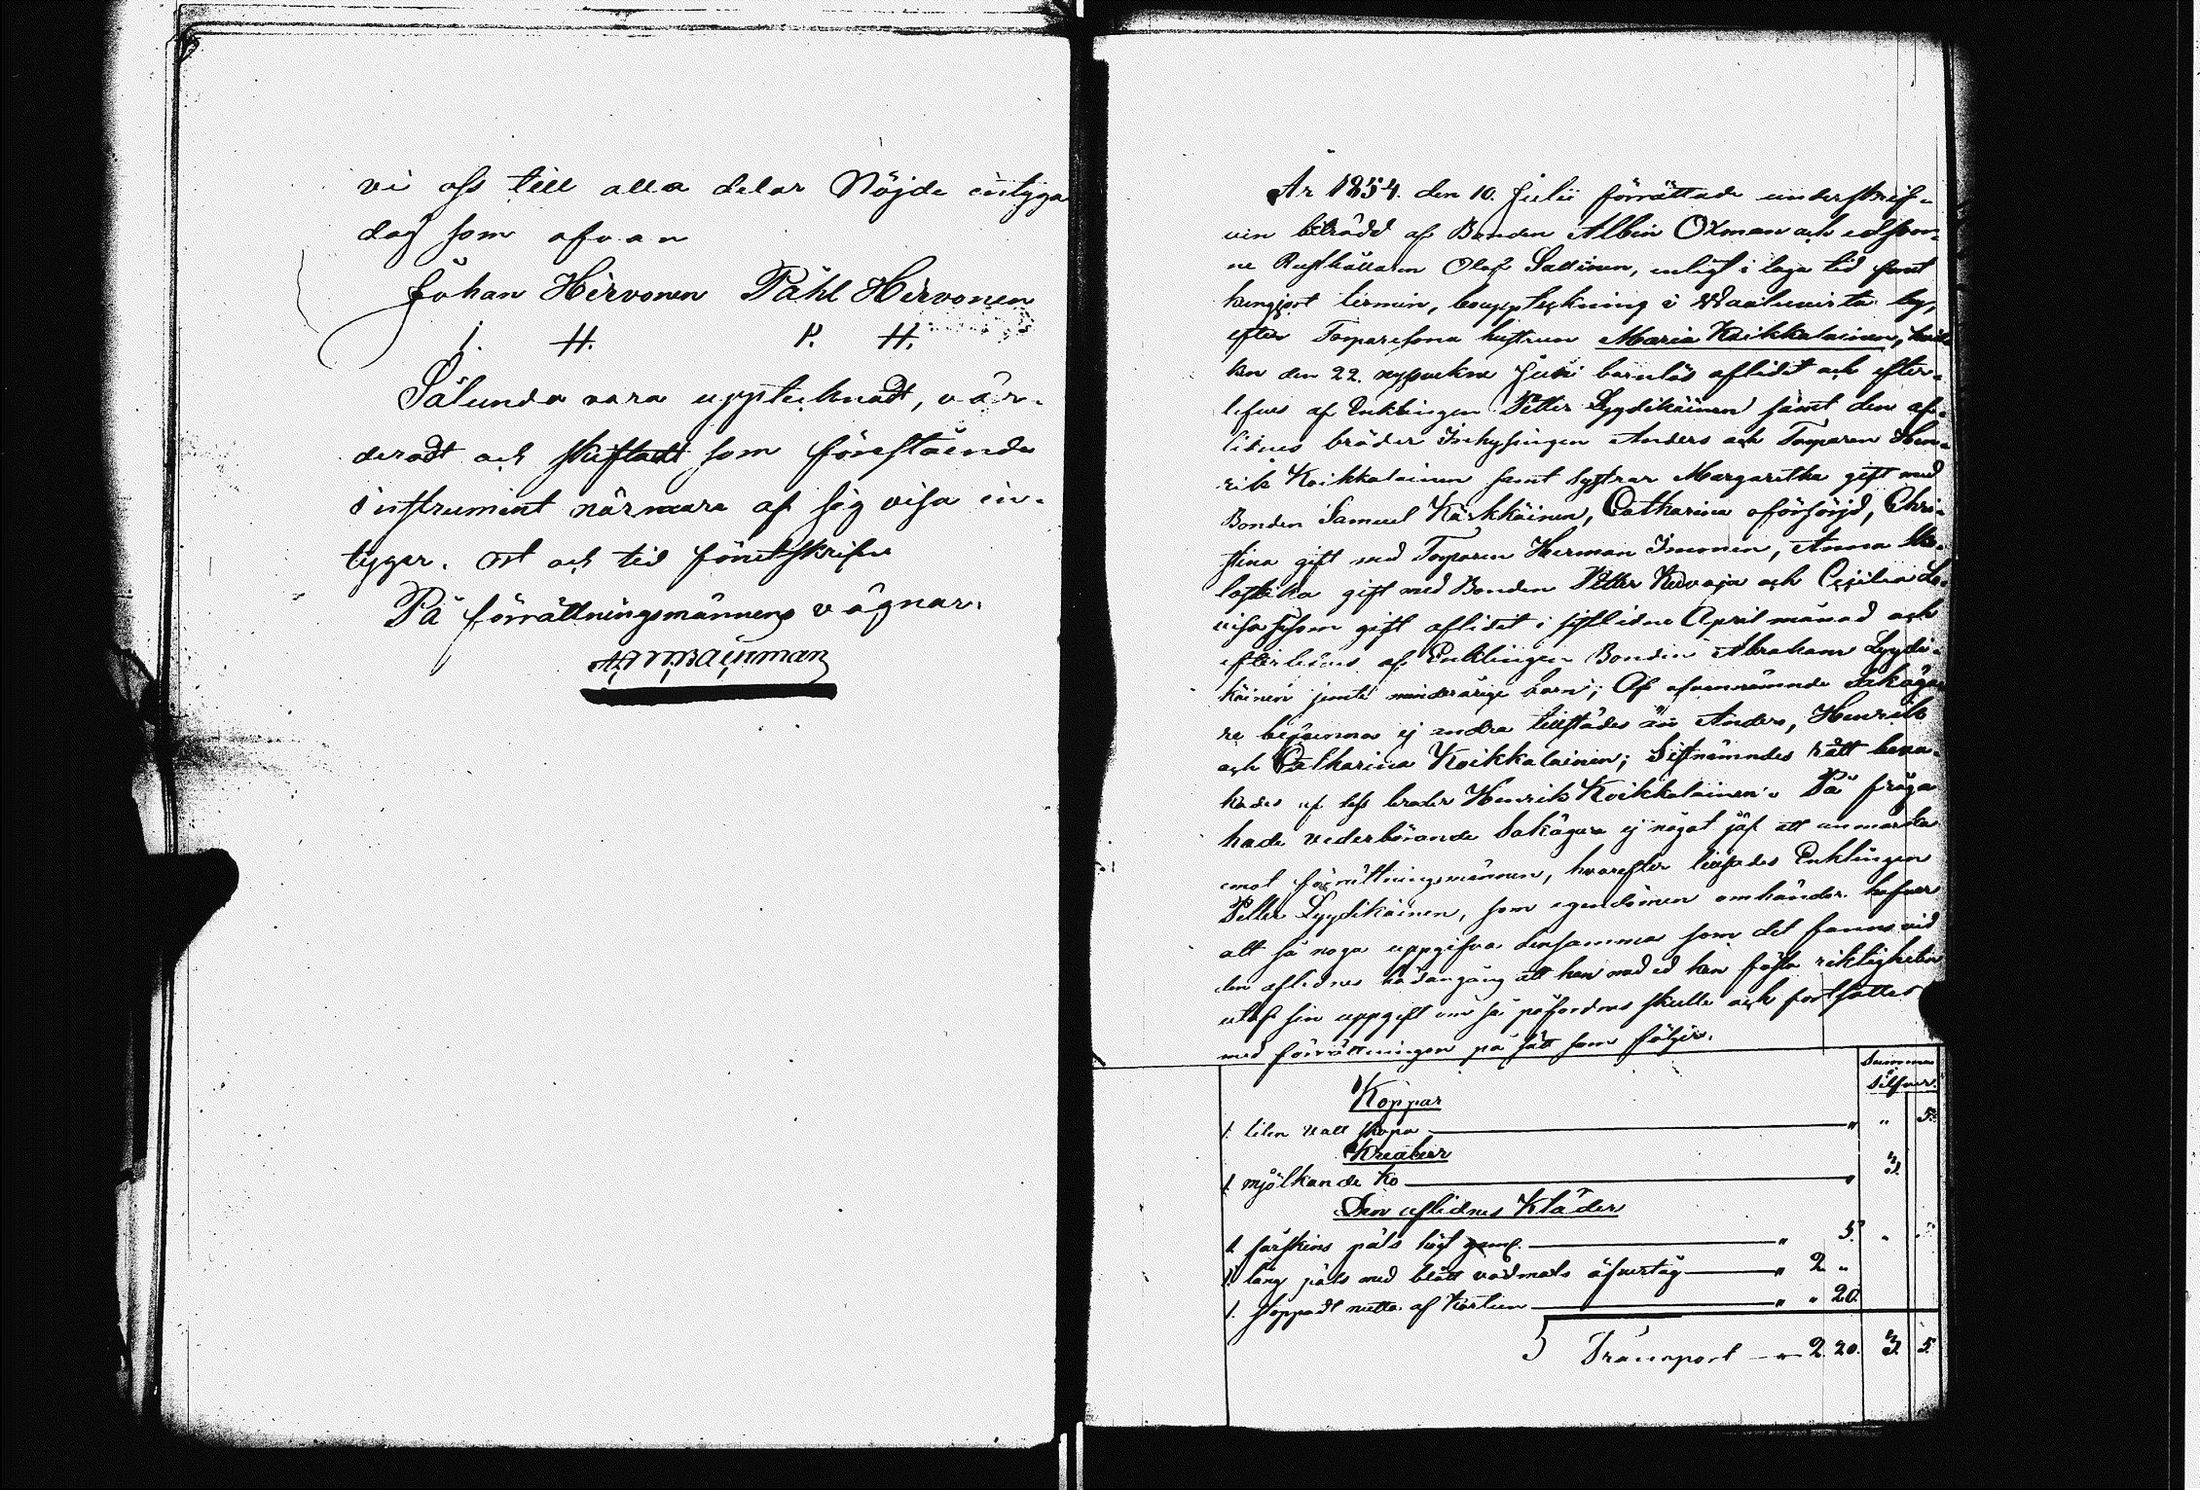 vi oss till alla delar Nöjde intyga
dag som ofvan
Johan Hirvonen Påhl Hirvonen
J. H. P. H.
Sålunda vara upptecknadt, vär-
deradt och skiftadt som förestående
instrument närmare af sig visa in-
tygar. ort och tid förutskrifne
På förrättningsmännens vägnar.
År 1854. den 10. Julii förrättade underskrif-
ven biträdd af Bonden Albin Oxman och edsvor-
ne Rusthållaren Olof Sallinen, enligt i laga tid förut
kungjort termin, bouppteckning i Waaluvirta by,
efter Torparesona hustrun Maria Koikkalainen, hvil-
ken den 22. nysvekne Juni barnlös aflidit och efter-
lefves af Enklingen Petter Lyydikäinen samt den af-
lidnes bröder Inhysingen Anders och Torparen Hen-
rik Koikkalainen samt systrar Margaretha gift med
Bonden Samuel Kärkkäinen, Catharina oförsörjd, Chri-
stina gift med Torparen Herman Imonen, Anna
gift med Bonden Petter och Cecilia Lo-
visa såsom gift aflidit i sistlidne April månad och
efterlefves af Enklingen Bonden Abraham Lyydi-
käinen jemte minderårige barn; Af ofvannämnde Sakäga-
re ej andra tillstädes än Anders, Henrik
och Catharina Koikkalainen; Sistnämndes rätt beva-
kades af dess broder Henrik Koikkalainen. På fråga
hade vederbörande Sakägare ej något jäf att anmärka
emot förrättningsmännen, hvarefter tillsades Enklingen
Petter Lyydikäinen, som egendomen omhänder hafver
att så noga uppgifva densamma som det fanns vid
den aflidnes dödangång att han med ed kan fästa riktigheten
utaf sin uppgift om så påfordras skulle och fortsattes
med förrättningen på sätt som följer.
Summa
Silfver.
Koppar
1. liten skopa " " 5.
Kreatur
1 mjölkande ko " 3.
Den aflidnes Kläder
1 fårskins päls " 5. "
1 lång päls med blått vadmals öfvertåg " 2 "
1. stoppadt mössa af Kartun " " 20.
Transport " 2. 20. 3. 5.